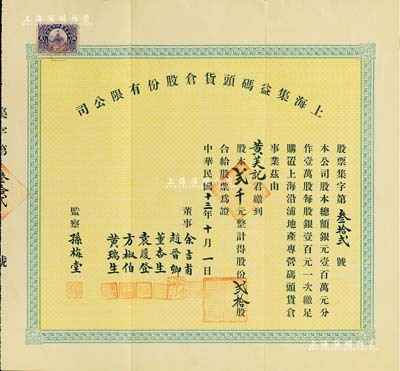 上海集益碼頭貨倉股份有限公司
股票集字第叁拾貳號
本公司股本總額銀元壹百萬元分
作壹萬股每股銀壹百元一次繳足
購置上海沿浦地產專營碼頭貨倉
事業茲由
黃芙記君繳到
股本貳千元整計得股份貳拾股
合給股票爲證
中華民國十三年十月一日
董事
余吉甫
趙晉卿
董杏生
袁履登
方椒伯
黃瑞生
監察 孫梅堂